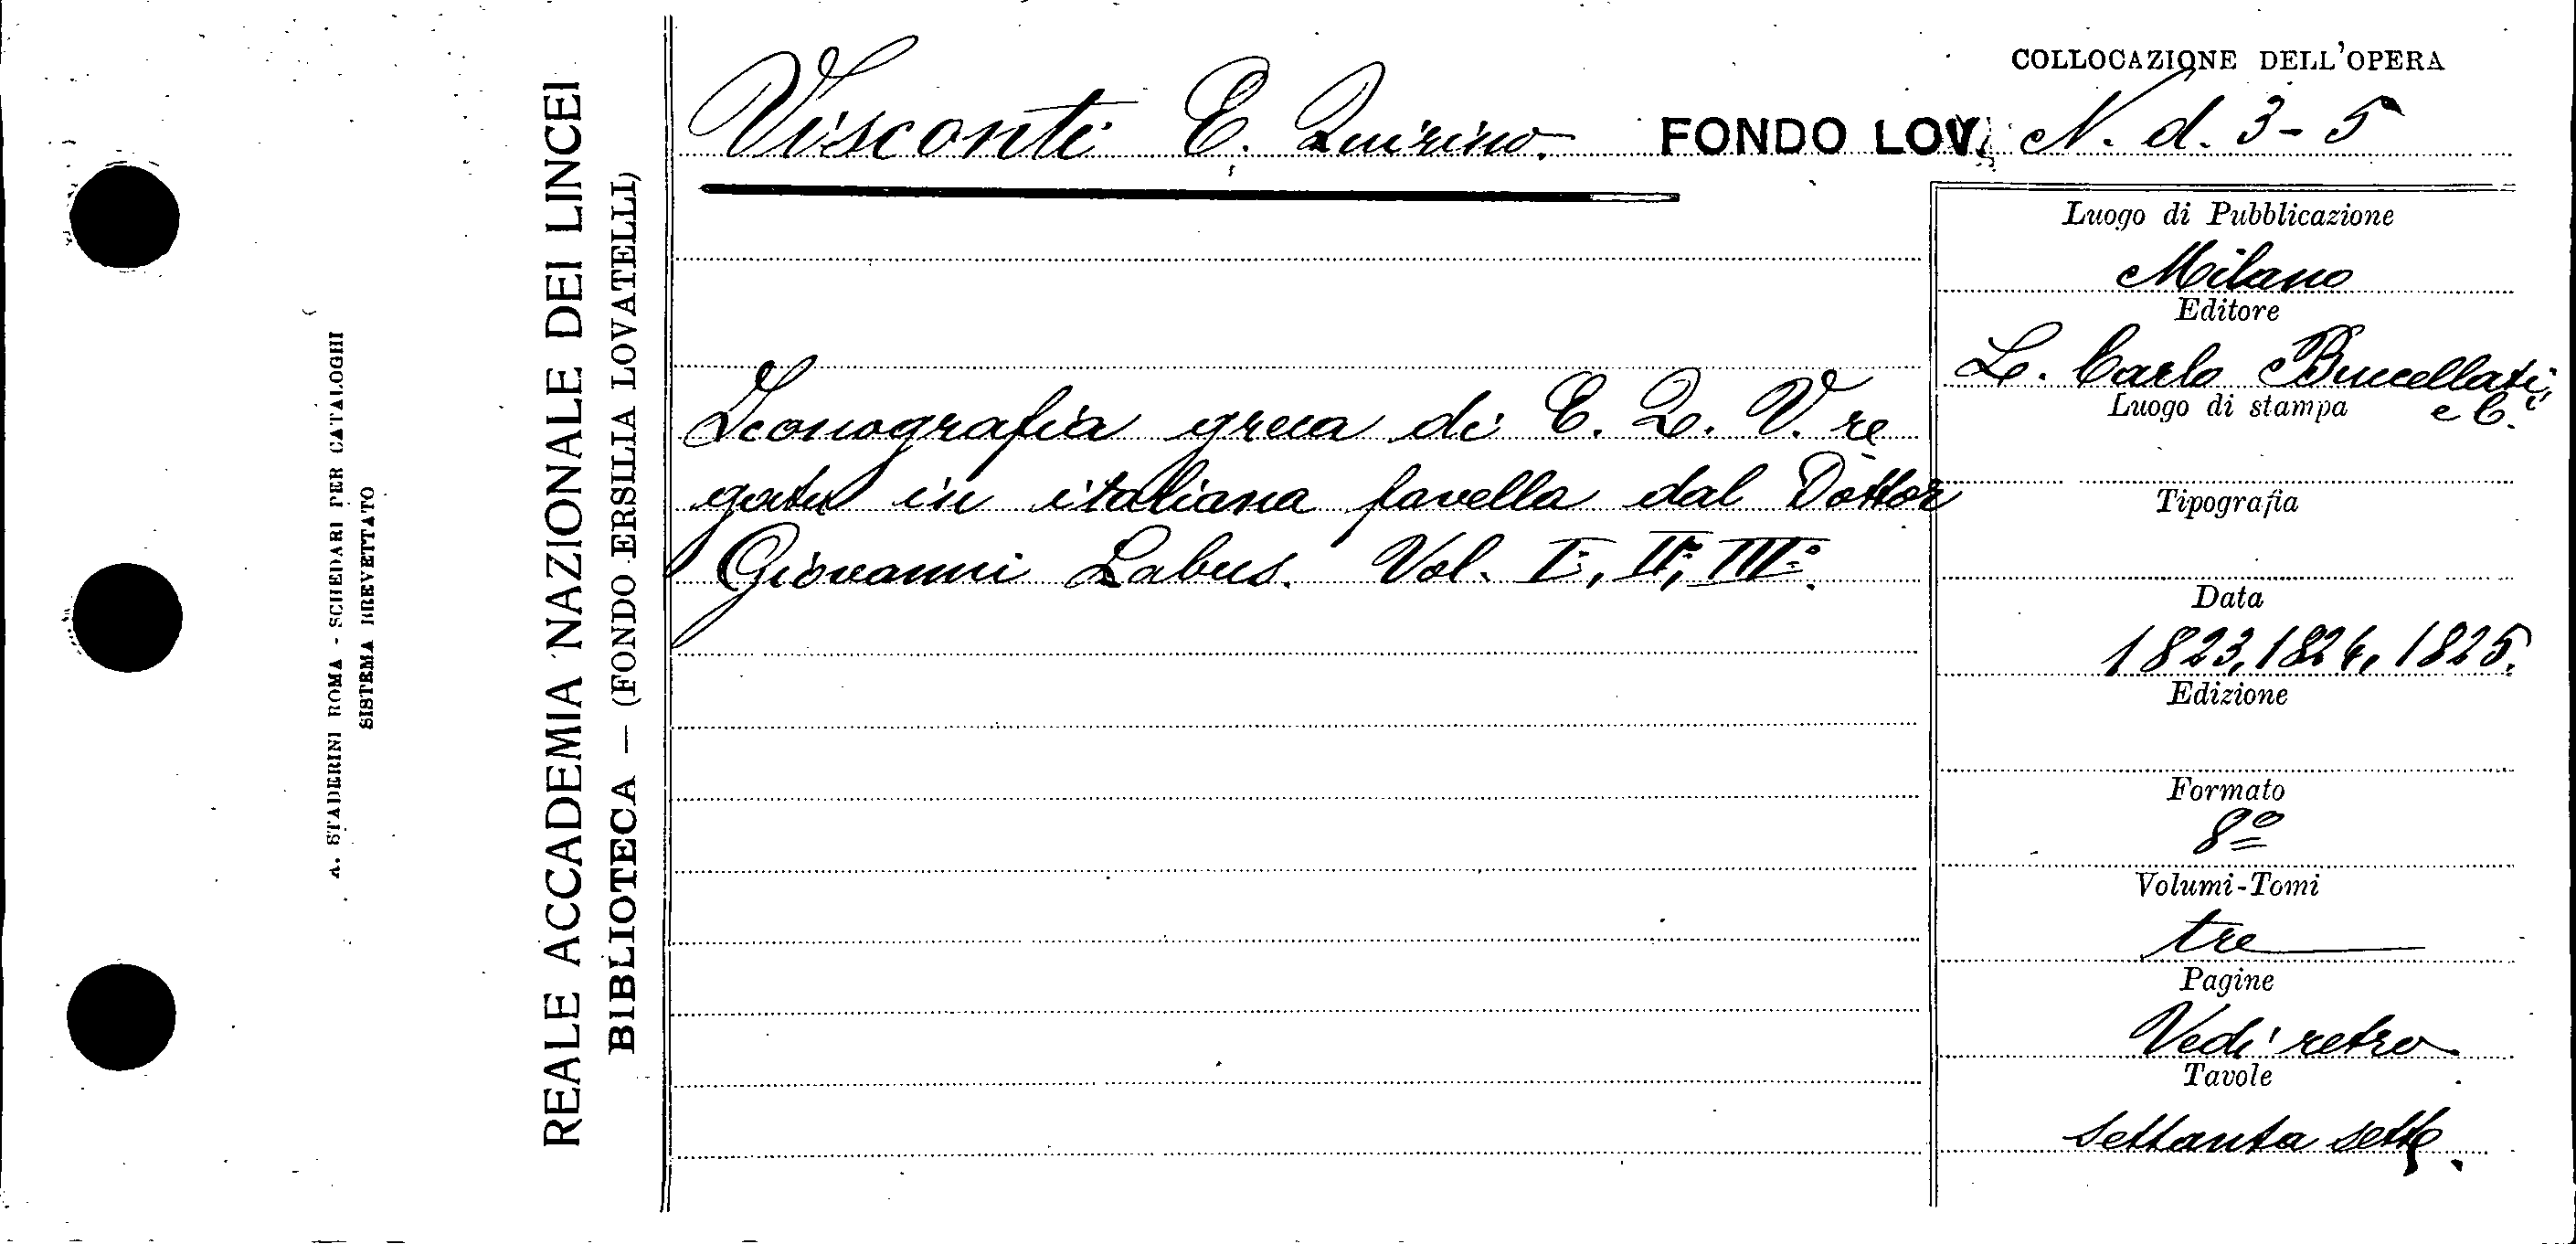 COLLOCAZIONE DELL'OPERA
Visconti E. Quirino. FONDO LOV. N. d. 3-5
Iconografia greca di E. Q. V. re
gata in italiana favella dal Dottor
Giovanni Labus. Vol. I°, II°, III°.
Luogo di Pubblicazione
Milano
Editore
Carlo Bucellati,
e C.i
Luogo di stampa
Tipografia
Data
1823, 1824, 1825.
Edizione
Formato
8º
Volumi-Tomi
tre
Pagine
Vedi retro
Tavole
Settanta sette.
REALE ACCADEMIA NAZIONALE DEI LINCEI
BIBLIOTECA — (FONDO ERSILIA LOVATELLI)
A. STADERINI ROMA - SCHEDARI PER CATALOGHI
SISTEMA BREVETTATO